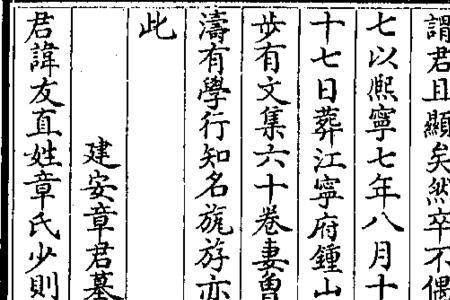 謂君且顯矣然卒不偶
七以熙寧七年八月十
十七日葬江寧府鍾山
步有文集六十卷妻曾
濤有學行知名旊斿亦
此
建安章君墓
君諱友直姓章氏少則